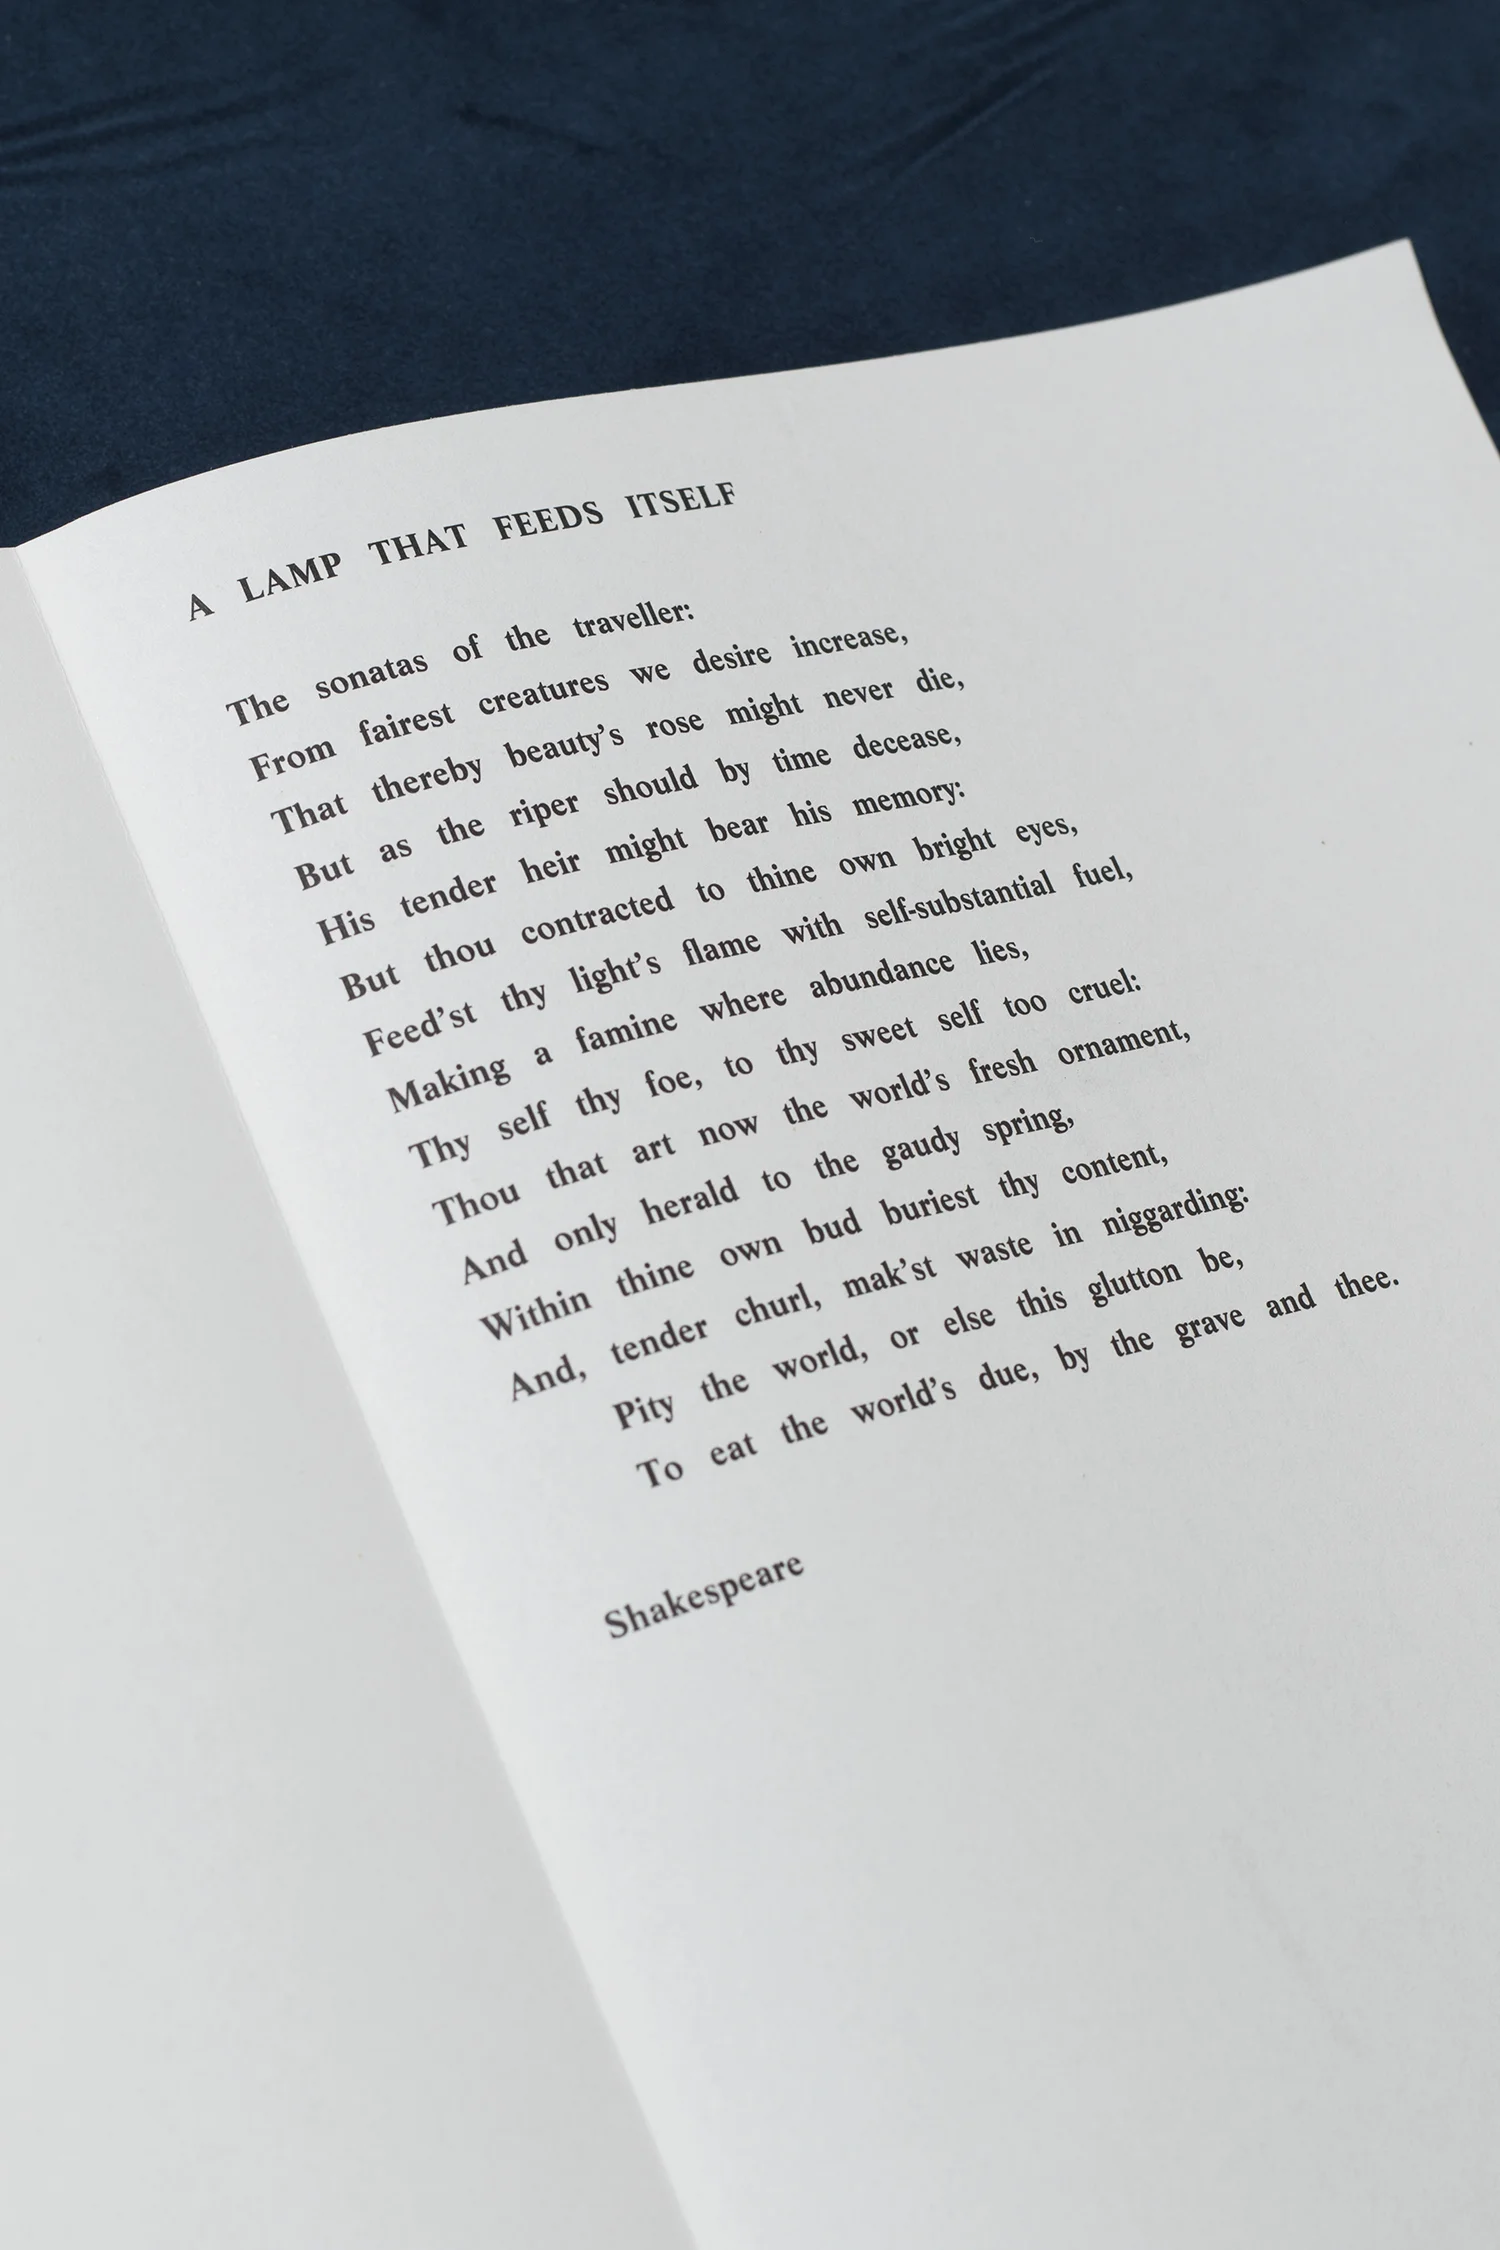 A LAMP THAT FEEDS ITSELF
The sonatas of the traveller:
From fairest creatures we desire increase,
That thereby beauty’s rose might never die,
But as the riper should by time decease,
His tender heir might bear his memory:
But thou contracted to thine own bright eyes,
Feed’st thy light’s flame with self-substantial fuel,
Making a famine where abundance lies,
Thy self thy foe, to thy sweet self too cruel:
Thou that art now the world’s fresh ornament,
And only herald to the gaudy spring,
Within thine own bud buriest thy content,
And, tender churl, mak’st waste in niggarding:
Pity the world, or else this glutton be,
To eat the world’s due, by the grave and thee.
Shakespeare